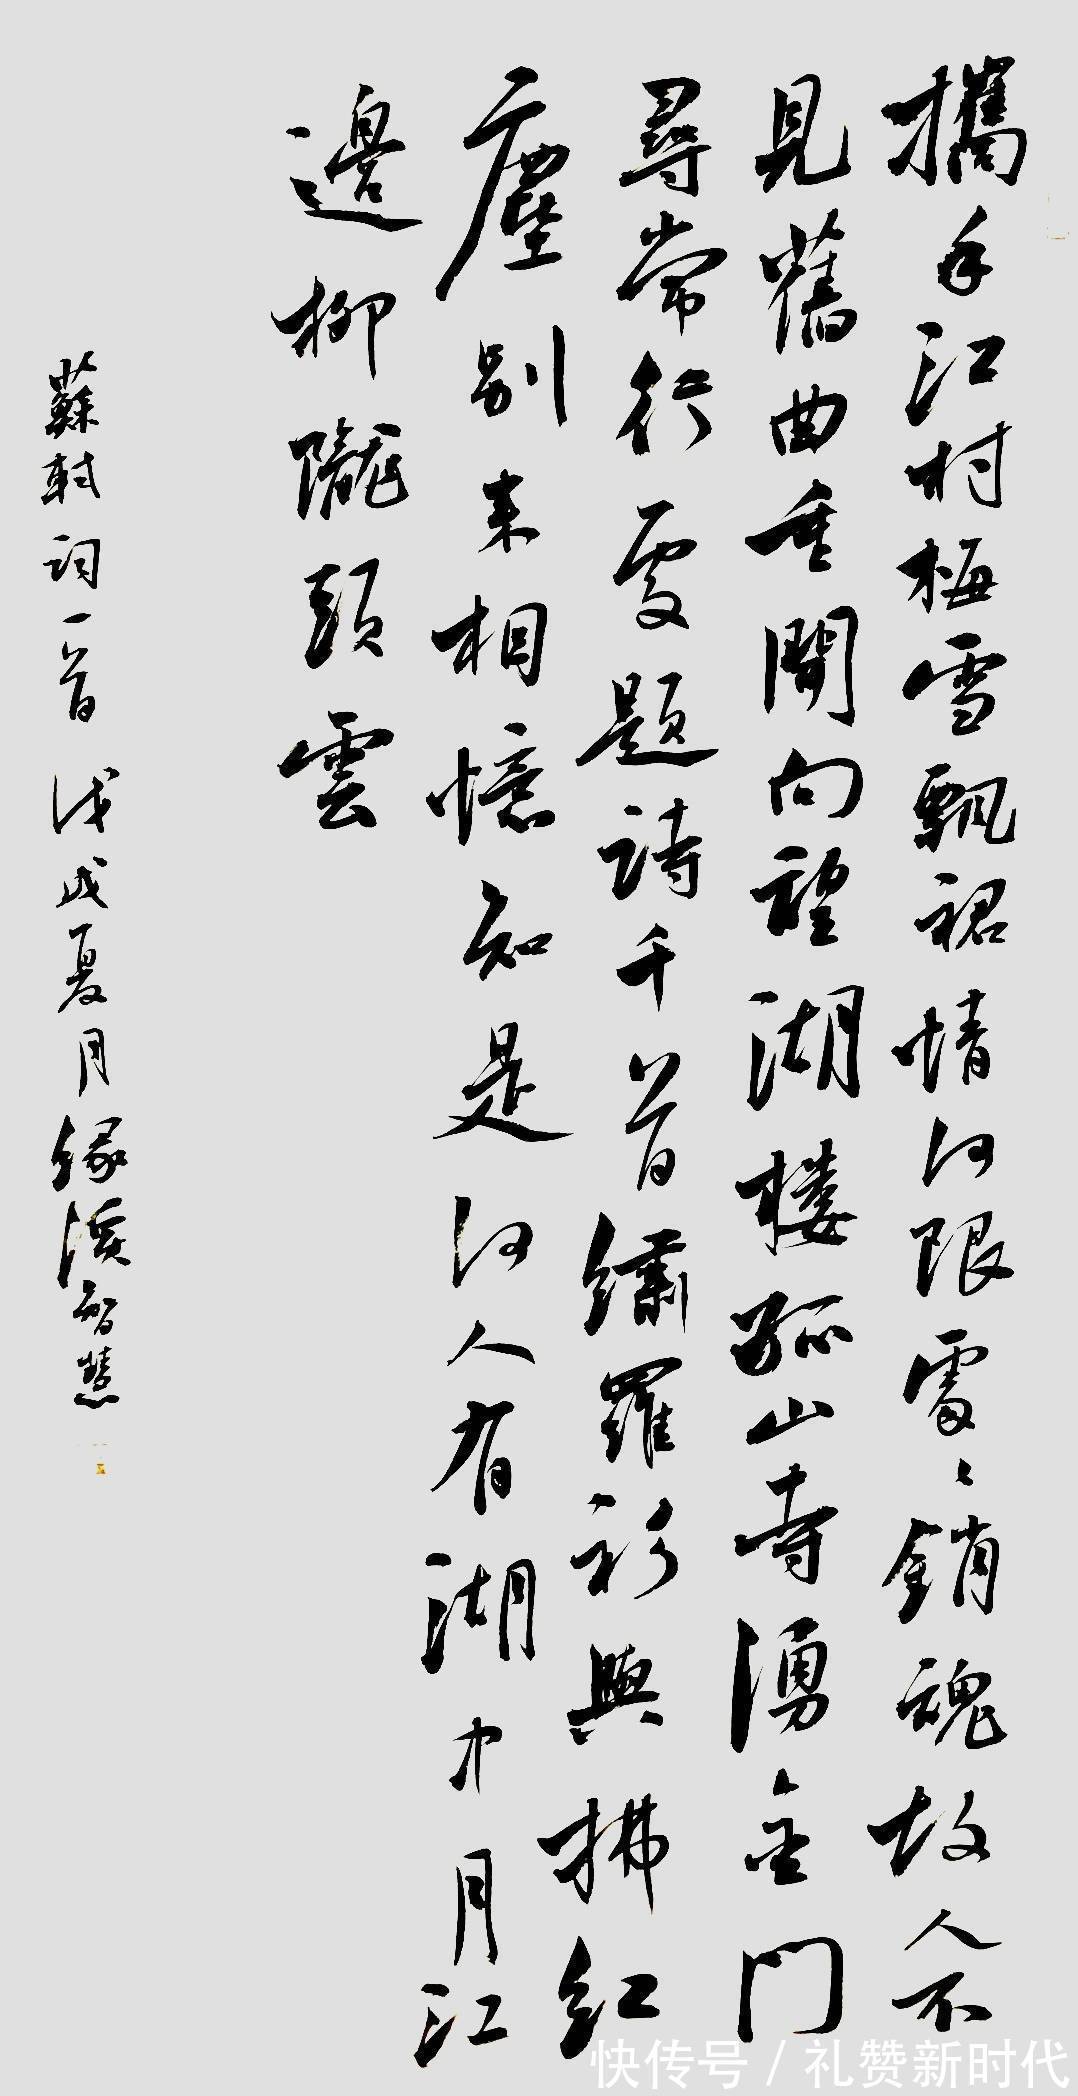 攜手江村梅雪飄裙情何限處々銷魂故人不
見舊曲重聞向望湖樓孤山寺湧金門
尋常行處題詩千首繡羅衫與拂紅
塵別來相憶知是何人有湖中月江
邊柳隴頭雲
蘇軾詞一首 戊戌夏月緣溪智慧
快传号 / 礼赞新时代